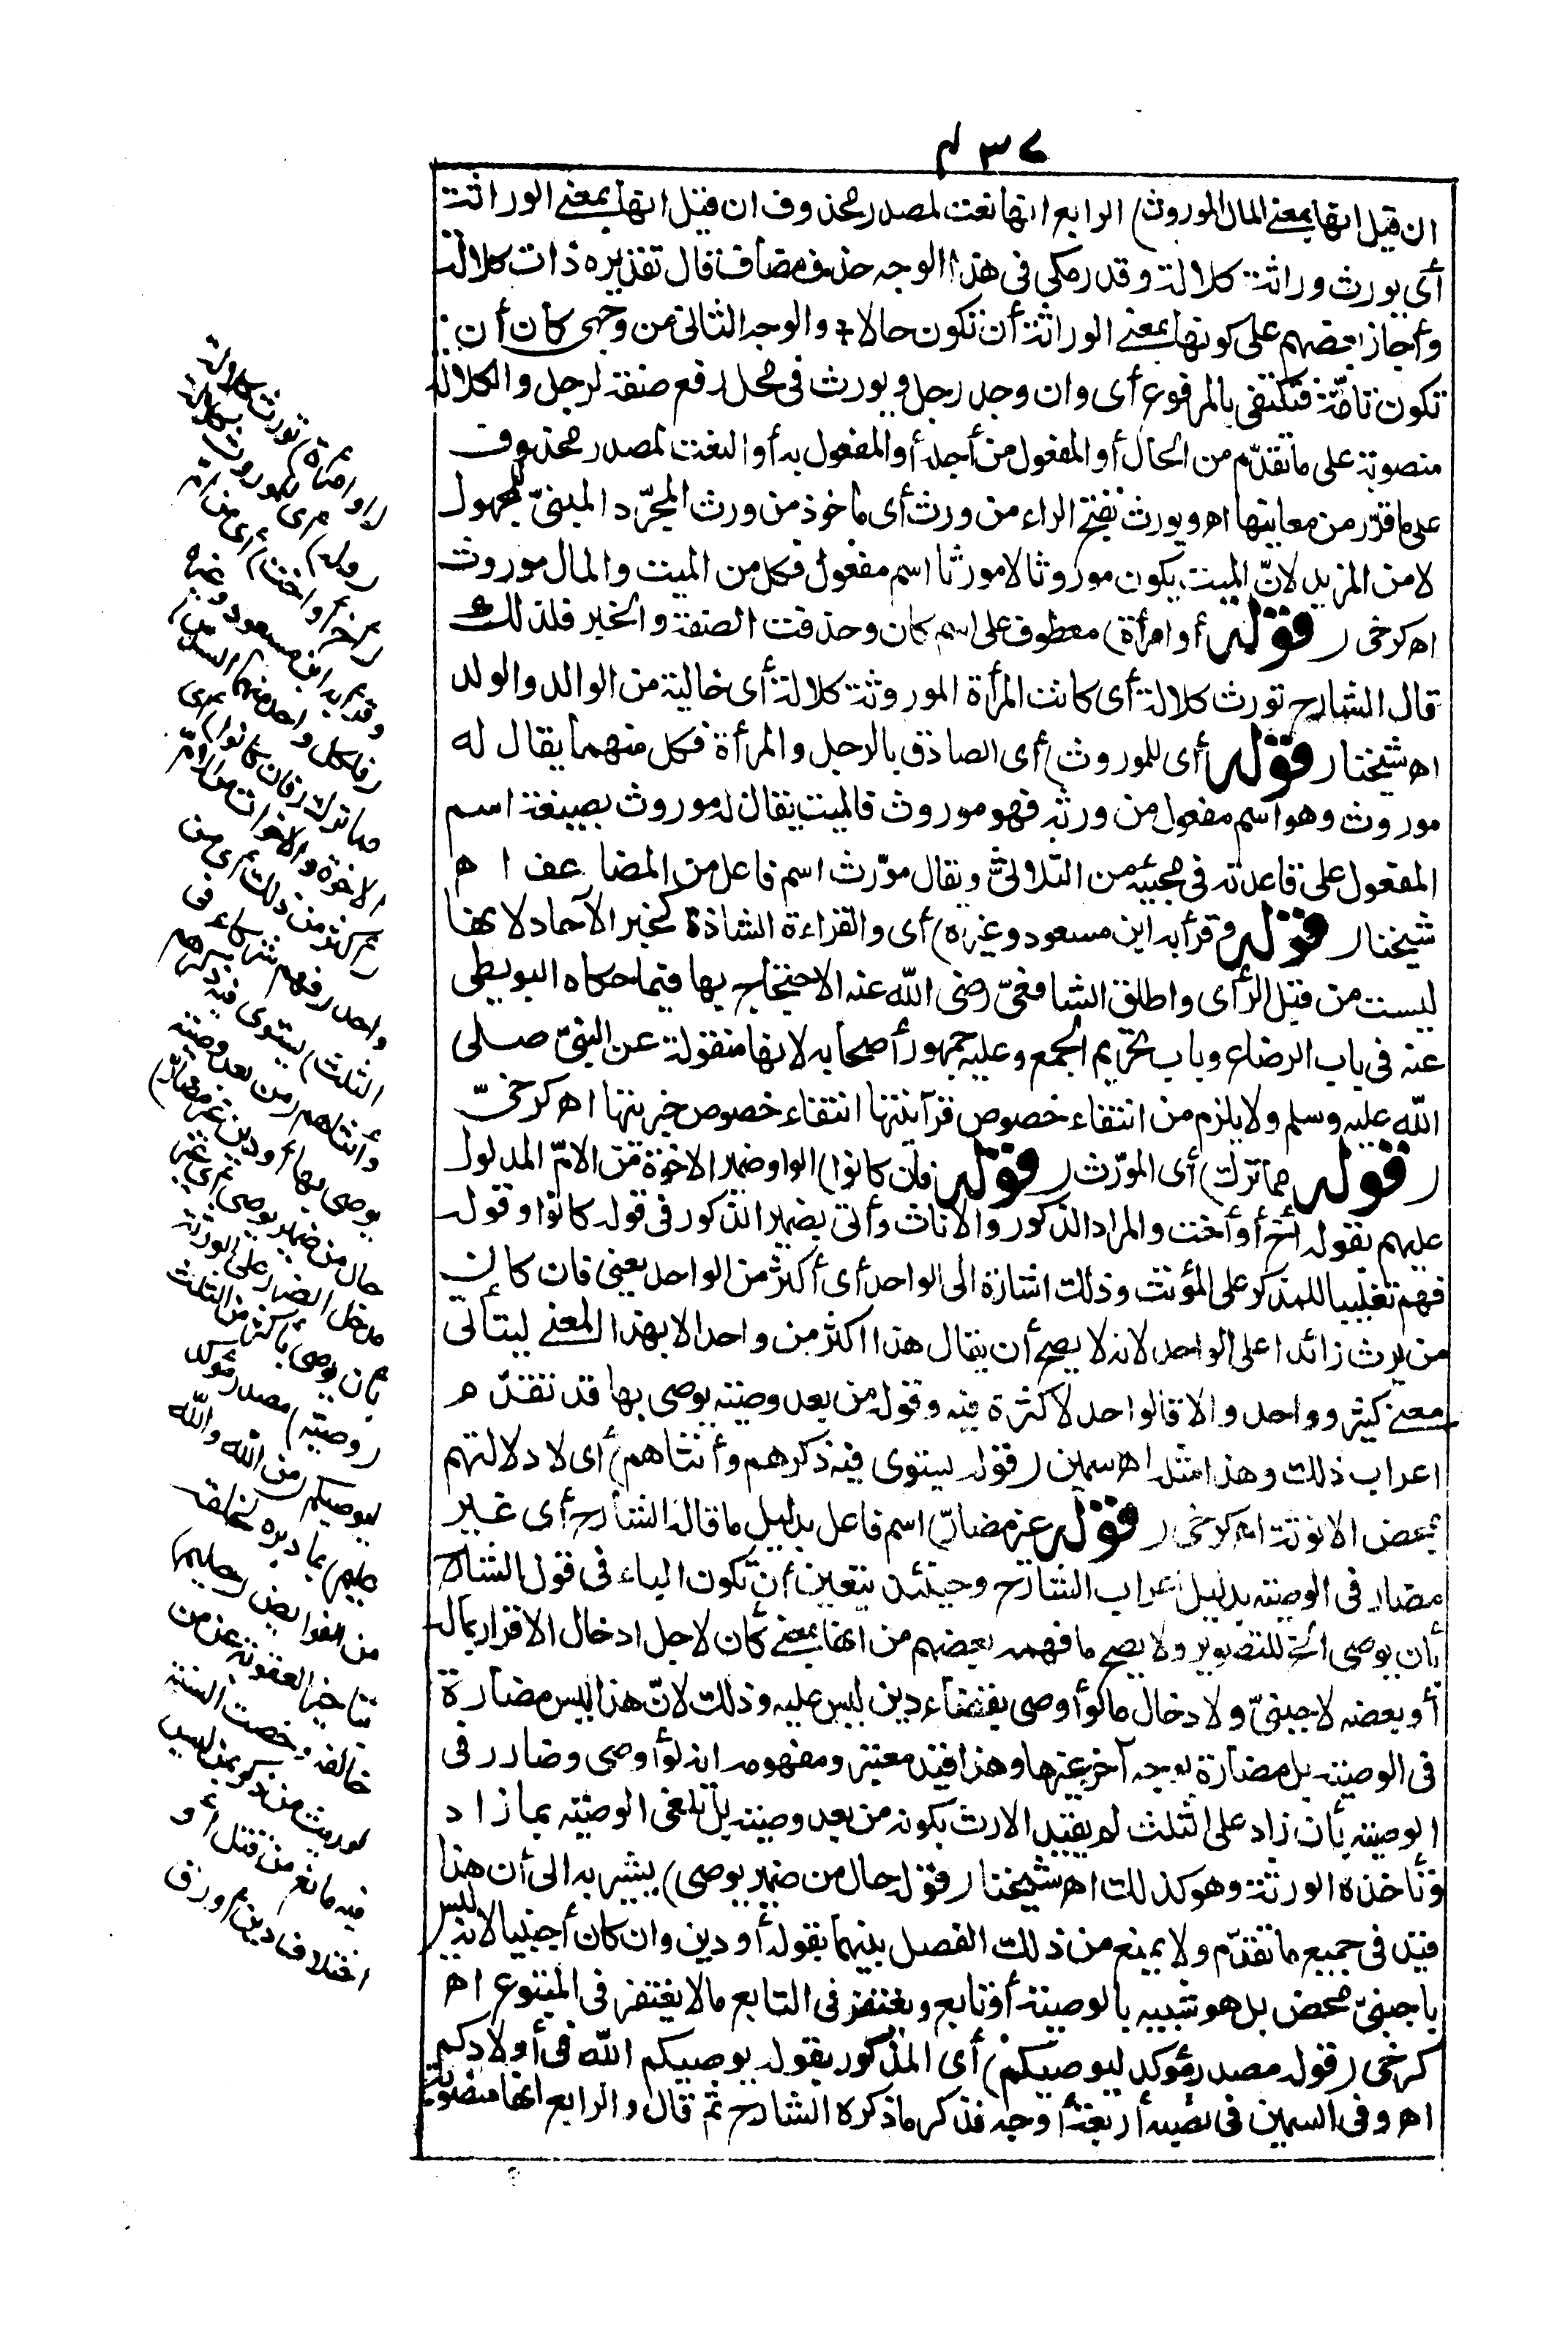 ٤٣٧
ان قيل انها بمعنى المال الموروث) الرابع انها نعت لمصدر محذوف ان قيل انها بمعنى الوراثة
أى يورث وراثة كلالة وقدر مكى فى هذا الوجه حذف مضاف قال تقديره ذات كلالة
وأجاز بعضهم على كونها بمعنى الوراثة أن تكون حالا والوجه الثانى من وجهى كان أن
تكون تامّة فتكتفى بالمرفوع أى وان وجد رجل ويورث فى محل رفع صفة لرجل والكلالة
منصوبة على ما تقدّم من الحال أو المفعول من أجله أو المفعول به أو النعت لمصدر محذوف
على ما قدّر من معانيها اه ويورث بفتح الراء من ورث أى مأخوذ من ورث المجرّد المبنىّ للمجهول
لا من المزيد لانّ الميت يكون موروثا لا مورثا اسم مفعول فكل من الميت والمال موروث
اه كرخى (قوله أو امرأة) معطوف على اسم كان وحذفت الصفة والخبر فلذلك
قال الشارح تورث كلالة أى كانت المرأة الموروثة كلالة أى خالية من الوالد والولد
اه شيخنا (قوله أى للموروث) أى الصادق بالرجل والمرأة فكل منهما يقال له
موروث وهو اسم مفعول من ورثه فهو موروث فالميت يقال له موروث بصيغة اسم
المفعول على قاعدته فى مجيئه من الثلاثىّ ويقال مورّث اسم فاعل من المضاعف اه
شيخنا (قوله وقرأ به ابن مسعود وغيره) أى والقراءة الشاذة كخبر الآحاد لانها
ليست من قبل الرأى واطلق الشافعىّ رضى الله عنه الاحتجاج بها فيما حكاه البويطى
عنه فى باب الرضاع وباب تحريم الجمع وعليه جمهور أصحابه لانها منقولة عن النبىّ صلى
الله عليه وسلم ولا يلزم من انتفاء خصوص قرآنيتها انتفاء خصوص خبريتها اه كرخىّ
(قوله مما ترك) أى المورّث (قوله فان كانوا) الواو ضمير الاخوة من الامّ المدلول
عليهم بقوله أخ أو أخت والمراد الذكور والاناث وأتى بضمير الذكور فى قوله كانوا وقوله
فهم تغليبا للمذكر على المؤنث وذلك اشارة الى الواحد أى أكثر من الواحد يعنى فان كان
من يرث زائدا على الواحد لانه لا يصح أن يقال هذا اكثر من واحد الا بهذا المعنى ليتأتى
معنى كثير وواحد والا فالواحد لا كثرة فيه وقوله من بعد وصية يوصى بها قد تقدّم
اعراب ذلك وهذا مثله اه سمين (قوله يستوى فيه ذكرهم وأنثاهم) أى لادلائهم
بمحض الانوثة اه كرخى (قوله غير مضارّ) اسم فاعل بدليل ما قاله الشارح أى غير
مضار فى الوصية بدليل اعراب الشارح وحينئذ يتعين أن تكون الباء فى قول الشارح
بأن يوصى الخ للتصوير ولا يصح ما فهمه بعضهم من انها بمعنى كأن لاجل ادخال الاقرار بماله
أو بعضه لاجنبىّ ولادخال ما لو أوصى بقضاء دين ليس عليه وذلك لانّ هذا ليس مضارة
فى الوصية بل مضارة بوجه آخر غيرها وهذا قيد معتبر ومفهومه انه لو أوصى وضارر فى
الوصية بأن زاد على الثلث لم يقيد الارث بكونه من بعد وصية بل تلغى الوصية بما زاد
وتأخذه الورثة وهو كذلك اه شيخنا (قوله حال من ضمير يوصى) يشير به الى أن هذا
قيد فى جميع ما تقدّم ولا يمنع من ذلك الفصل بينهما بقوله أو دين وان كان أجنبيا لانه ليس
باجنبىّ محض بل هو شبيه بالوصية أو تابع ويغتفر فى التابع ما لا يغتفر فى المتبوع اه
كرخى (قوله مصدر مؤكد ليوصيكم) أى المذكور بقوله يوصيكم الله فى أولادكم
اه وفى السمين فى نصبه أربعة أوجه فذكر ما ذكره الشارح ثم قال والرابع انها منصوبة
(أو امرأة) تورث كلالة
(وله) أى للموروث
(أخ أو أخت) أى من امّ
وقرأ به ابن مسعود وغيره
(فلكل واحد منهما السدس)
مما ترك (فان كانوا) أى
الاخوة والاخوات من الامّ
(أكثر من ذلك) أى من
واحد (فهم شركاء فى
الثلث) يستوى فيه ذكرهم
وأنثاهم (من بعد وصية
يوصى بها أو دين غير مضارّ)
حال من ضمير يوصى أى غير
مدخل الضرر على الورثة
بأن يوصى بأكثر من الثلث
(وصية) مصدر مؤكد
ليوصيكم (من الله والله
عليم) بما دبره لخلقه
من الفرائض (حليم)
بتاخير العقوبة عن من
خالفه وخصت السنة
توريث من ذكر بمن ليس
فيه مانع من قتل أو
اختلاف دين أو رق